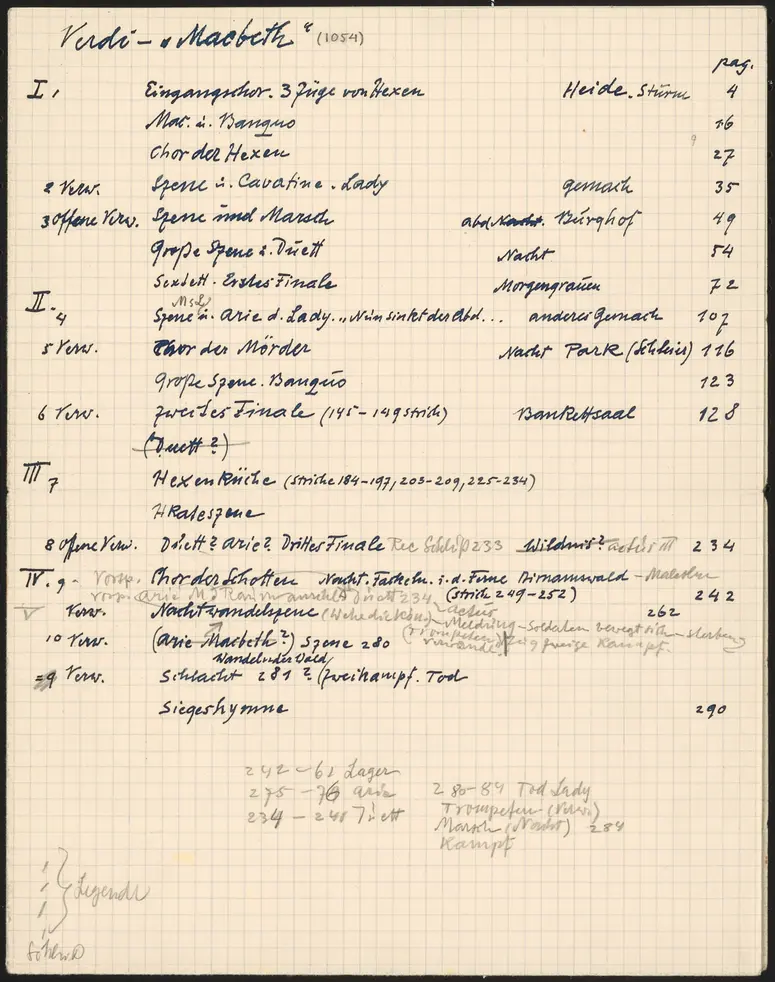 Verdi – „Macbeth“ (1054)
pag.
I, 1 Eingangschor. 3 Züge von Hexen Heide. Sturm 4
Mac. u. Banquo 16
Chor der Hexen 27
2 Verw. Szene u. Cavatine. Lady Gemach 35
3 offene Verw. Szene und Marsch abd. Nacht. Burghof 49
Große Szene u. Duett Nacht 54
Sextett. Erstes Finale Morgengrauen 72
II. 4 Szene u. Arie d. Lady. „Nun sinkt der Abd... anderes Gemach 107
5 Verw. Chor der Mörder Nacht Park (Schleier) 116
Große Szene. Banquo 123
6 Verw. Zweites Finale (145–149 strich) Bankettsaal 128
(Duett?)
III 7 Hexenküche (Striche 184–197, 203–209, 225–234)
Hkateszene
8 offene Verw. Duett? Arie? Drittes Finale Rec Schluß 233 Wildnis? actus III 234
IV. 9 – Vorsp. Chor der Schotten Nacht. Fackeln. i. d. Ferne Birnamswald – Malcolm
Vorsp. Arie M. Duett 234 (strich 249–252) 242
V Verw. Nachtwandelszene actus 262
Meldung – Soldaten bewegt sich – sterben
10 Verw. (Arie Macbeth?) Szene 280 (Trompeten) Kampf.
Wandelnder Wald
9 Verw. Schlacht 281? (Zweikampf. Tod
Siegeshymne 290
242 – 61 Lager
275 – 76 Arie 280–84 Tod Lady
234 – 241 Duett Trompeten (Verw.)
Marsch (Nacht) 284
Kampf
Legende